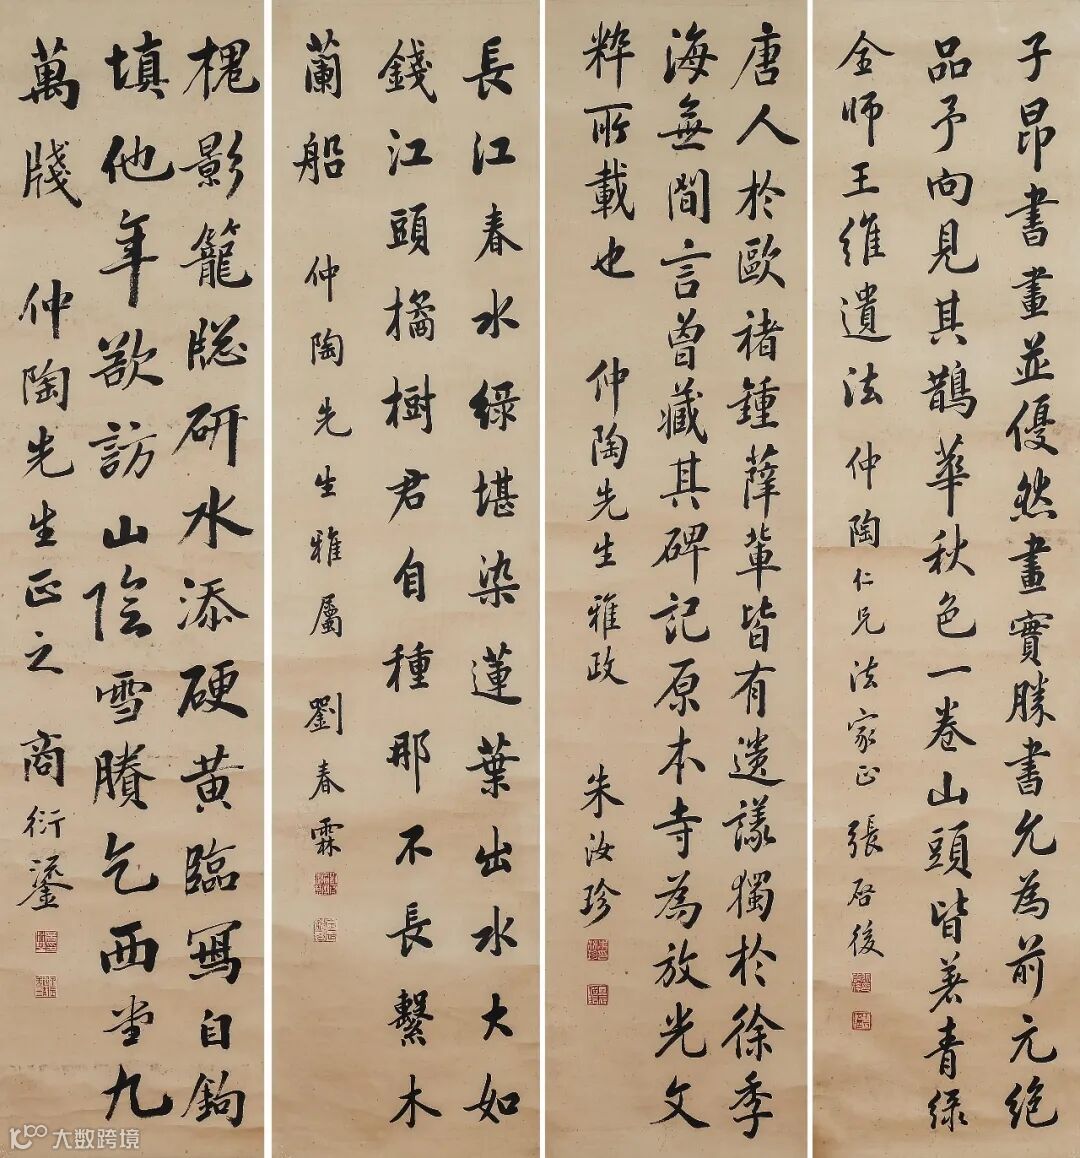 子昂書畫並優然畫實勝書允為前元絶
品予向見其鵲華秋色一卷山頭皆著青緑
金師王維遺法 仲陶仁兄法家正 張啓後
唐人於歐褚鍾薛輩皆有遺議獨於徐季
海無間言曾藏其碑記原本寺為放光文
粹所載也 仲陶先生雅政 朱汝珍
長江春水緑堪染蓮葉出水大如
錢江頭橘樹君自種那不長繫木
蘭船 仲陶先生雅屬 劉春霖
槐影籠窗研水添硬黄臨寫自鉤
填他年欲訪山陰雪賸乞西堂九
萬牋 仲陶先生正之 商衍鎏
大数跨境